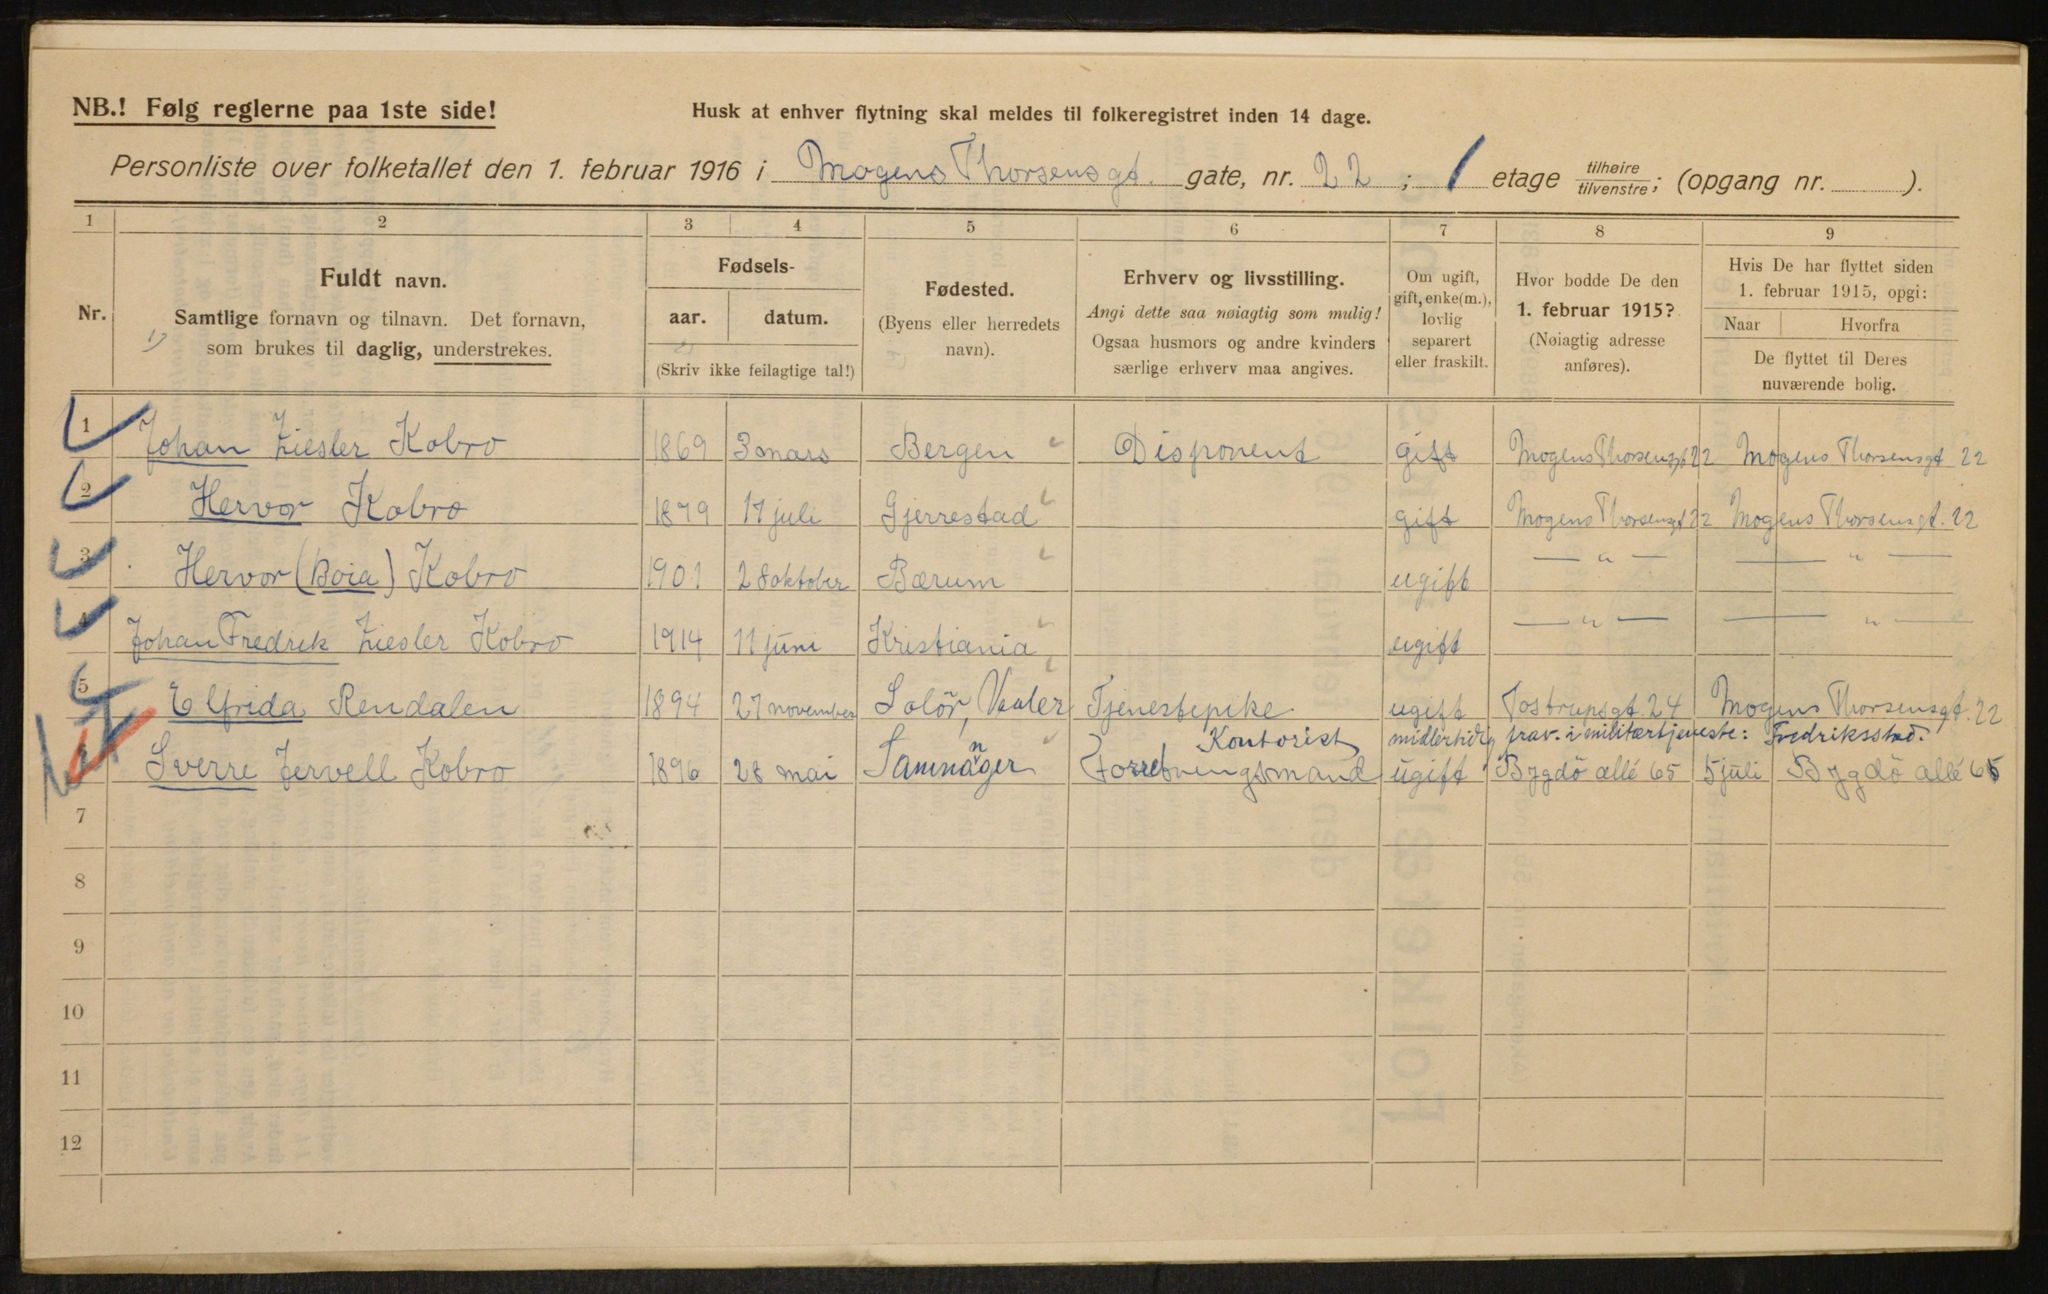 NB.! Følg reglerne paa 1ste side!
Husk at enhver flytning skal meldes til folkeregistret inden 14 dage.
Personliste over folketallet den 1. februar 1916 i Mogens Thorsensgt. gate, nr. 22; 1 etage tilhøire/tilvenstre; (opgang nr. ).
1 2 3 4 5 6 7 8 9
Nr.
Fuldt navn.
Samtlige fornavn og tilnavn. Det fornavn,
som brukes til daglig, understrekes.
Fødsels-
aar. datum.
(Skriv ikke feilagtige tal!)
Fødested.
(Byens eller herredets
navn).
Erhverv og livsstilling.
Angi dette saa nøiagtig som mulig!
Ogsaa husmors og andre kvinders
særlige erhverv maa angives.
Om ugift,
gift, enke(m.),
lovlig
separert
eller fraskilt.
Hvor bodde De den
1. februar 1915?
(Nøiagtig adresse
anføres).
Hvis De har flyttet siden
1. februar 1915, opgi:
Naar Hvorfra
De flyttet til Deres
nuværende bolig.
1 Johan Ziesler Kobro 1869 3 mars Bergen Disponent gift Mogens Thorsensgt 22 Mogens Thorsensgt 22
2 Hervor Kobro 1879 17 juli Gjerrestad gift Mogens Thorsensgt 22 Mogens Thorsensgt. 22
3 Hervor (Boia) Kobro 1901 28 oktober Bærum ugift — " — — " —
4 Johan Fredrik Ziesler Kobro 1914 11 juni Kristiania ugift — " — — " —
5 Elfrida Rendalen 1894 27 november Solör, Vaaler Tjenestepike ugift Tostrupsgt. 24 Mogens Thorsensgt. 22
Kontorist midlertidig frav. i militærtjeneste: Fredriksstad.
Sverre Jervell Kobro 1896 28 mai Samnanger Forretningsmand ugift Bygdö allé 65 5 juli Bygdö allé 65
7
8
9
10
11
12